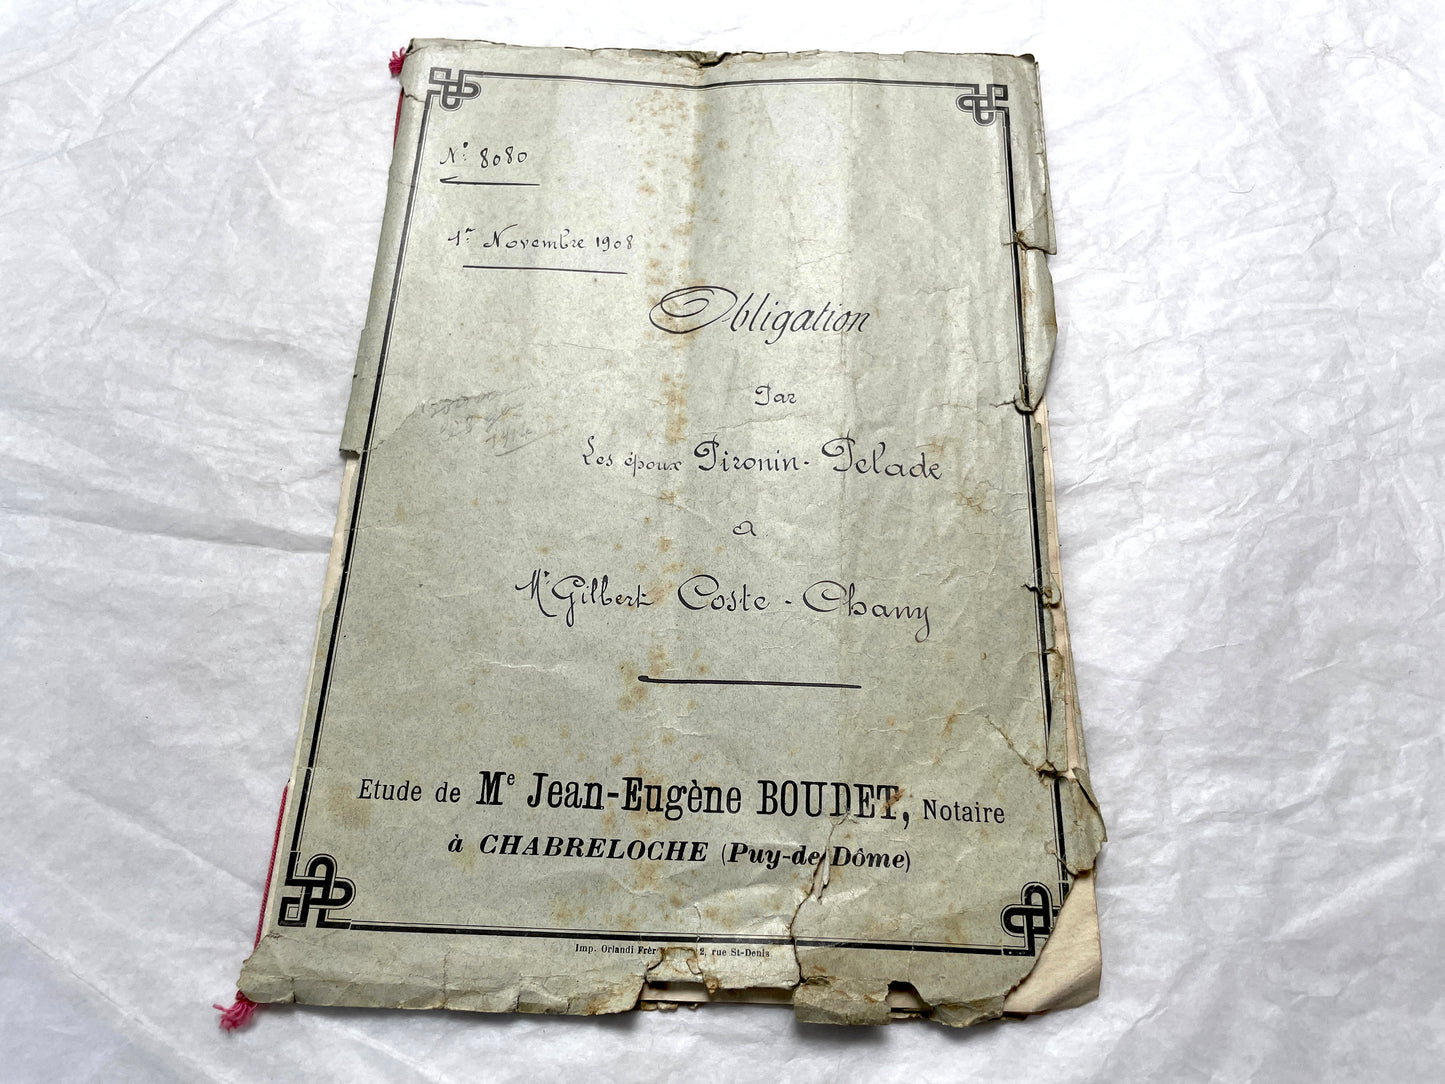 N° 8080
1er Novembre 1908
Obligation
Par
Les époux Pironin-Pelade
a
Mr Gilbert Coste-Chany
Etude de Me Jean-Eugène BOUDET, Notaire
à CHABRELOCHE (Puy-de-Dôme)
Imp. Orlandi Frèr 2, rue St-Denis